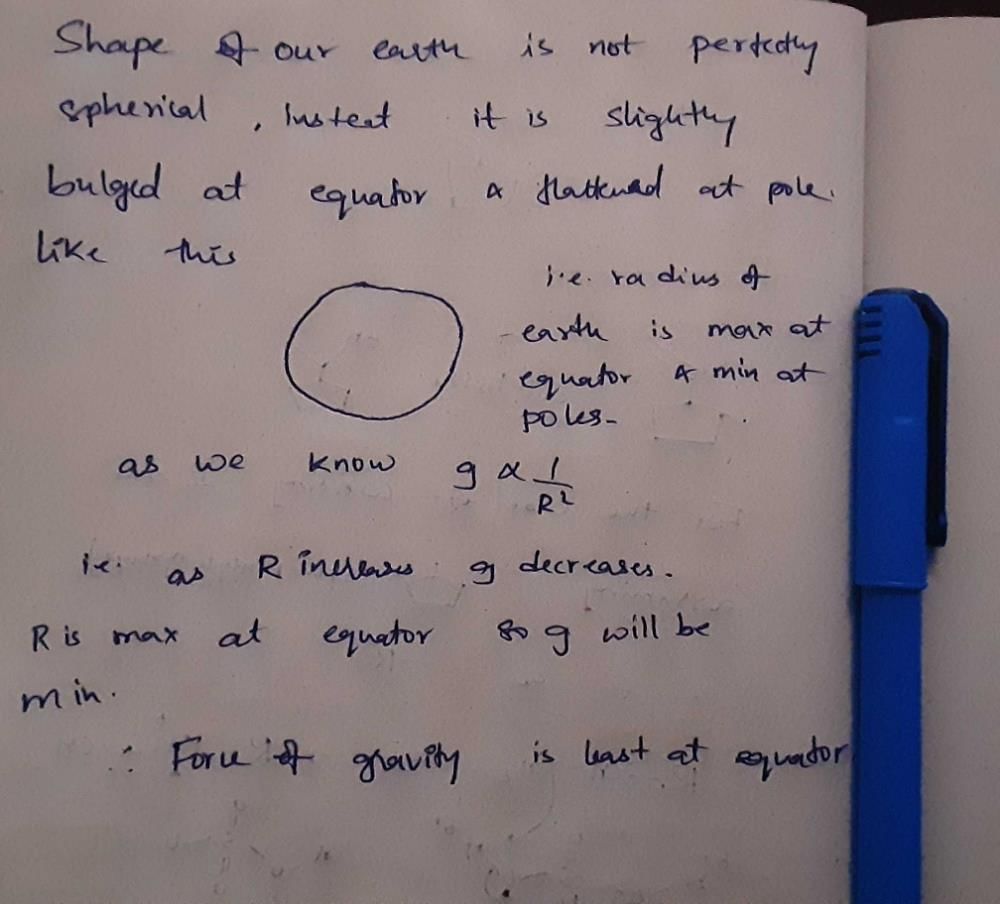 Shape of our earth is not perfectly
spherical, Insteat it is slightly
bulged at equator & flattened at pole.
like this
i.e. radius of
earth is max at
equator & min at
poles.
as we know g ∝ 1/R²
i.e. as R increases g decreases.
R is max at equator so g will be
min.
∴ Force of gravity is least at equator